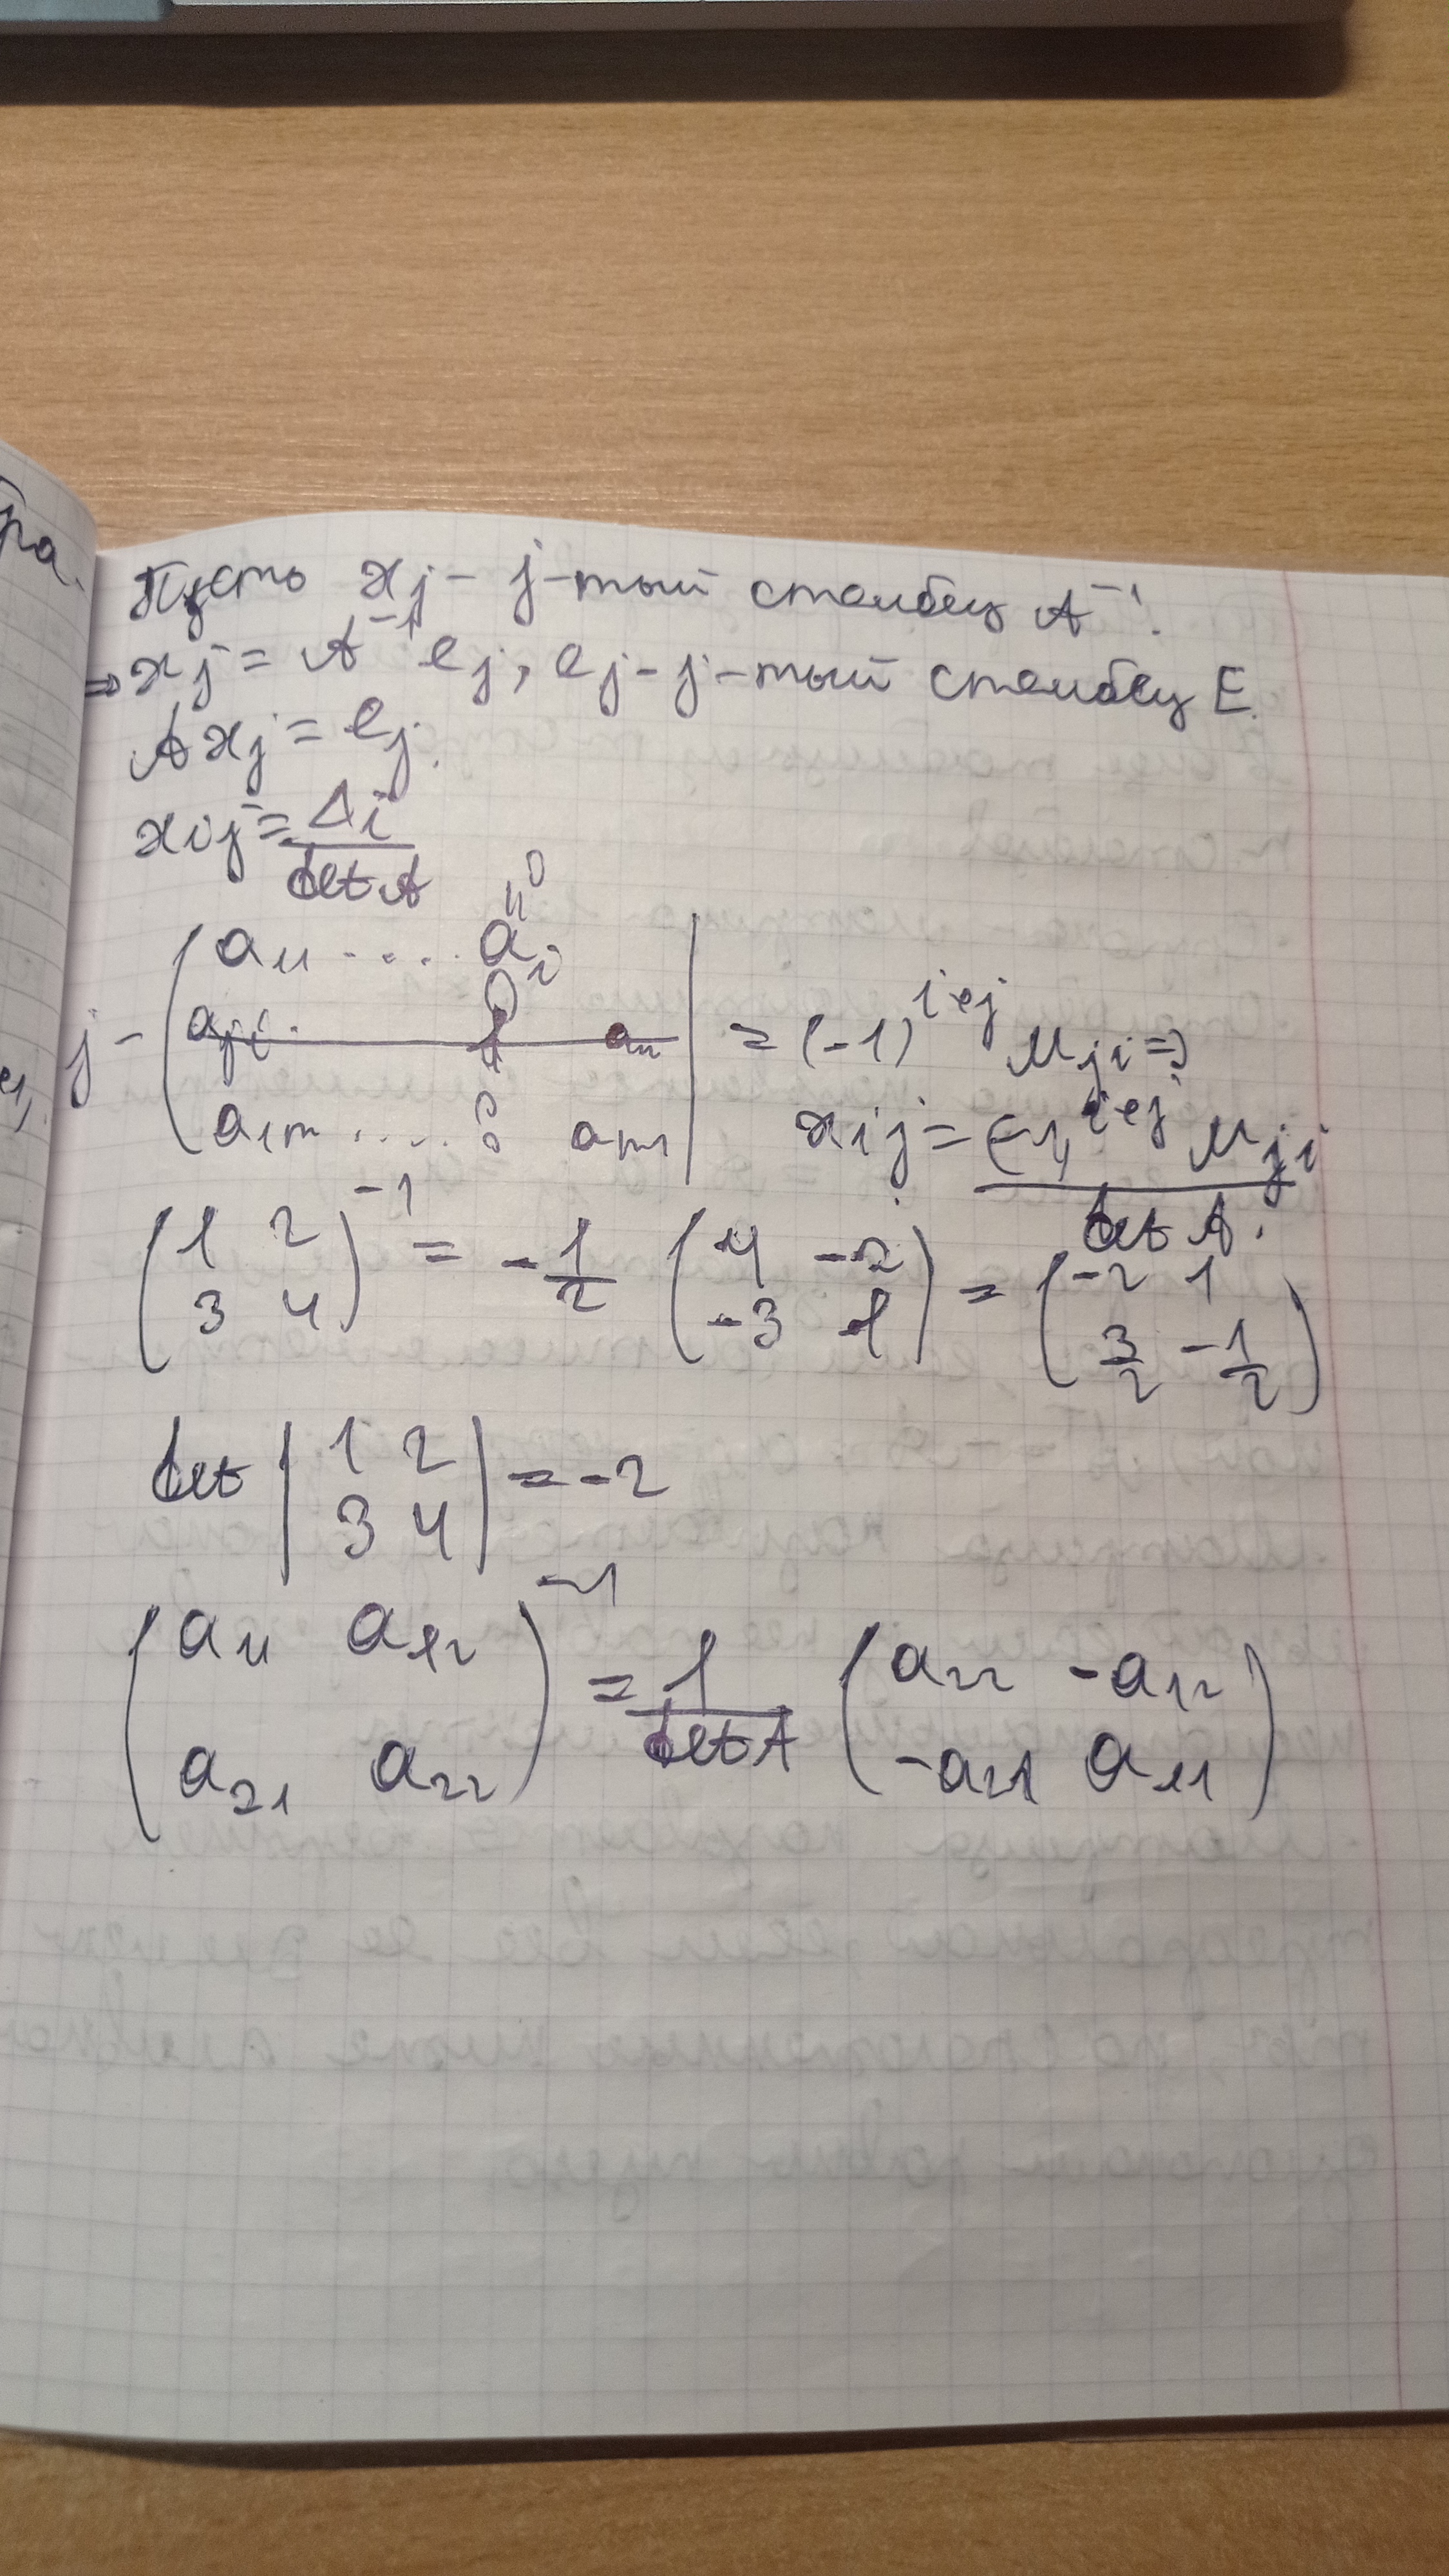 Пусть xj - j-тый столбец A⁻¹.
⇒ xj = A⁻¹ ej, ej - j-тый столбец E.
A xj = ej.
xij = Δi / det A
a11 .... ai = 0
j - 1
a1n .... 0 ann
= (-1)^(i+j) Mji ⇒
xij = (-1)^(i+j) Mji / det A.
(1 2; 3 4)⁻¹ = -1/2 (4 -2; -3 1) = (-2 1; 3/2 -1/2)
det |1 2; 3 4| = -2
(a11 a12; a21 a22)⁻¹ = 1/det A (a22 -a12; -a21 a11)